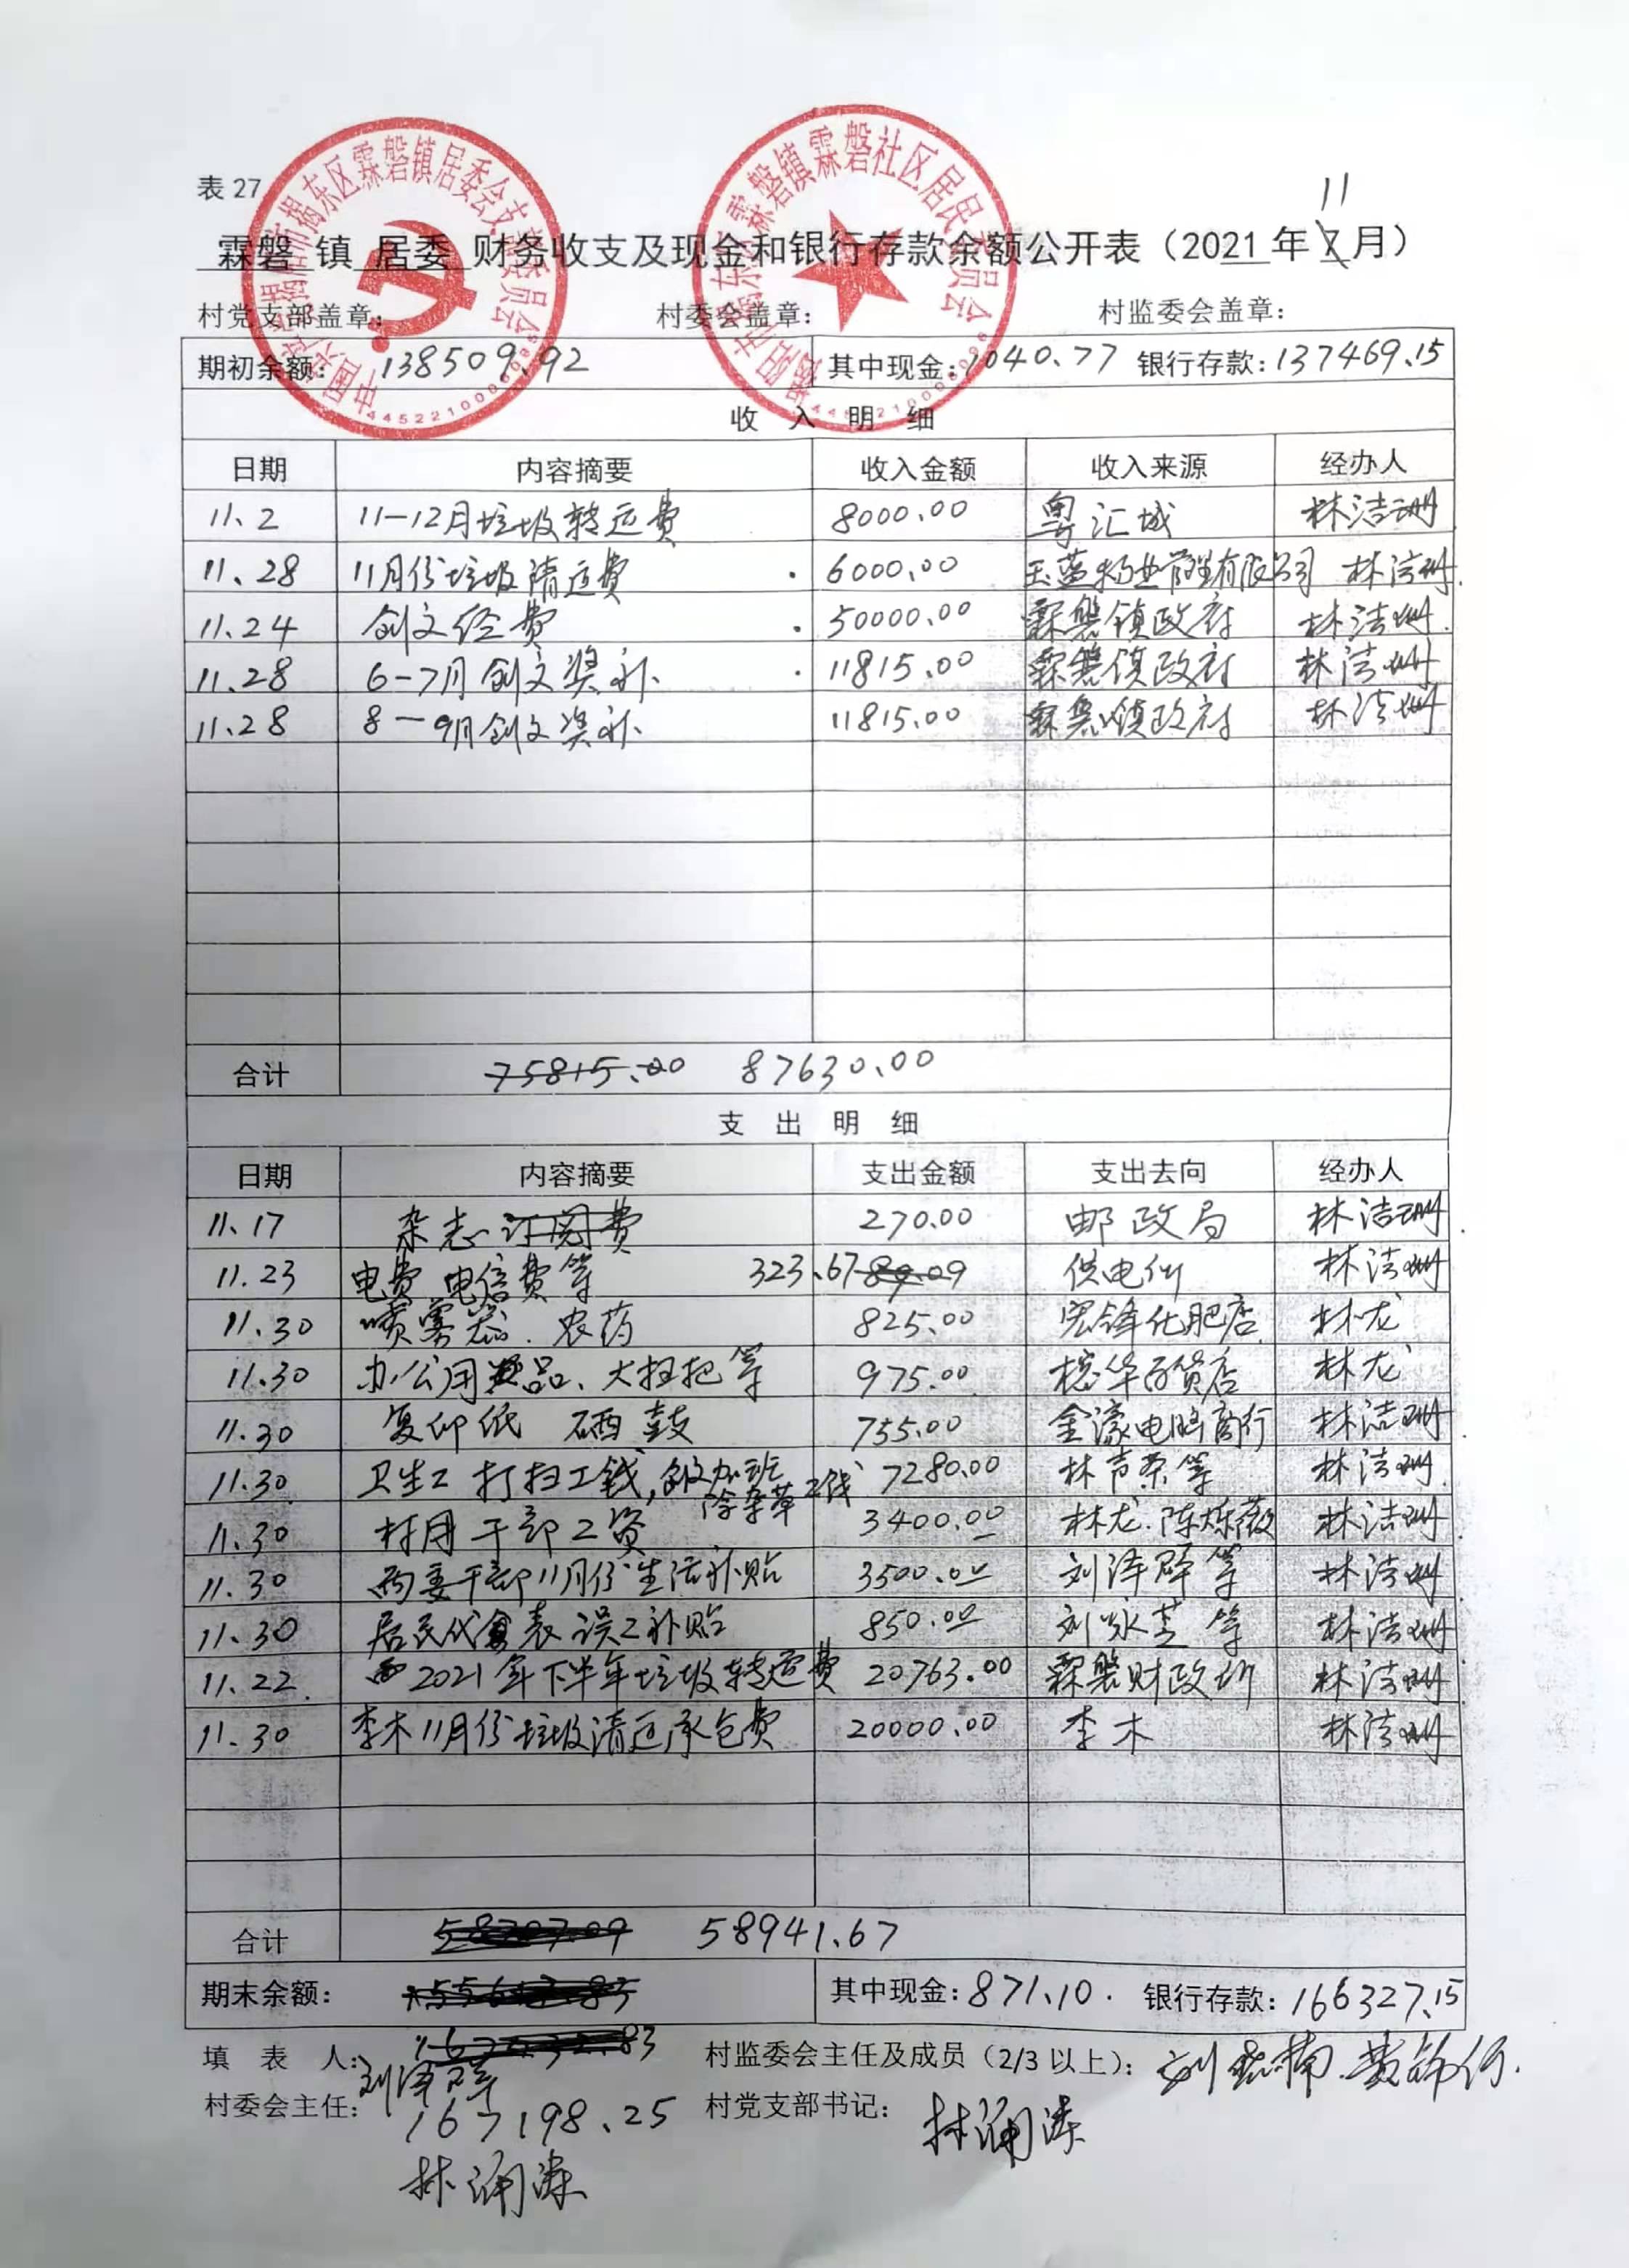 11
表 27
霖磐 镇 居委 财务收支及现金和银行存款余额公开表（2021 年 7 月）
村党支部盖章： 村委会盖章： 村监委会盖章：
期初余额： 138509.92 其中现金：1040.77 银行存款：137469.15
收 入 明 细
日期 内容摘要 收入金额 收入来源 经办人
11.2 11-12月垃圾转运费 8000.00 粤汇城 林洁珊
11.28 11月份垃圾清运费 6000.00 玉蓝物业管理有限公司 林洁珊
11.24 创文经费 50000.00 霖磐镇政府 林洁珊
11.28 6-7月创文奖补 11815.00 霖磐镇政府 林洁珊
11.28 8-9月创文奖补 11815.00 霖磐镇政府 林洁珊
合计 75815.00 87630.00
支 出 明 细
日期 内容摘要 支出金额 支出去向 经办人
11.17 杂志订阅费 270.00 邮政局 林洁珊
11.23 电费 电信费等 323.67 89.09 供电所 林洁珊
11.30 喷雾器、农药 825.00 宏锋化肥店 林龙
11.30 办公用品、大扫把等 975.00 百货店 林龙
11.30 复印纸 硒鼓 755.00 金濠电脑商行 林洁珊
11.30 卫生工打扫工钱, 加班除杂草工钱 7280.00 林声荣等 林洁珊
11.30 村用干部工资 3400.00 林龙.陈烁薇 林洁珊
11.30 两委干部11月份生活补贴 3500.00 刘泽群等 林洁珊
11.30 居民代表误工补贴 850.00 刘咏芝等 林洁珊
11.22 2021年下半年垃圾转运费 20763.00 霖磐财政所 林洁珊
11.30 李木11月份垃圾清运承包费 20000.00 李木 林洁珊
合计 58707.09 58941.67
期末余额： 其中现金：871.10. 银行存款：166327.15
填 表 人： 村监委会主任及成员（2/3 以上）：
村委会主任： 167198.25 村党支部书记：